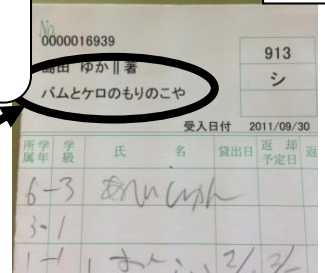 No
0000016939
島田 ゆか‖著
バムとケロのもりのこや
913
シ
受入日付 2011/09/30
所属 学年 学級 氏名 貸出日 返却予定日 返
6-3
3-1
1-1 2/ 3/